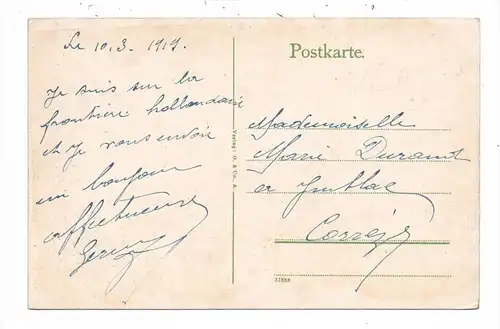 Le 10.3. 1919.
Je suis sur la
frontière hollandaise
et Je vous envoie
un bonjour
affectueux
Postkarte.
Mademoiselle
Marie Durand
Corrèze
Verlag: O. & Co., A.
31858